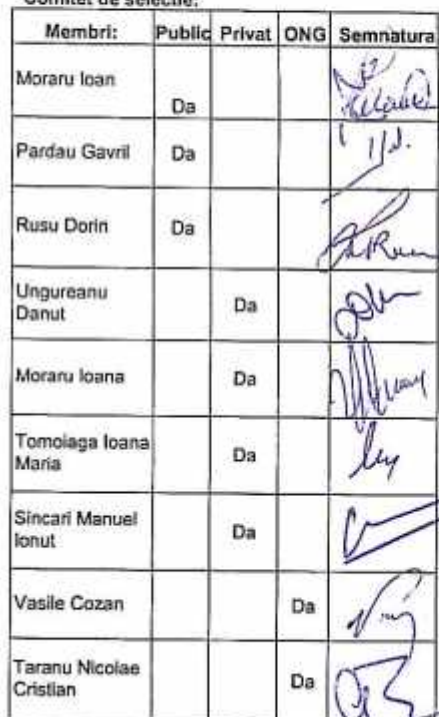 Comitet de selectie:
Membri: Public Privat ONG Semnatura
Moraru Ioan
Da
Pardau Gavril Da
Rusu Dorin Da
Ungureanu
Danut Da
Moraru Ioana Da
Tomoiaga Ioana
Maria Da
Sincari Manuel
Ionut Da
Vasile Cozan Da
Taranu Nicolae
Cristian Da